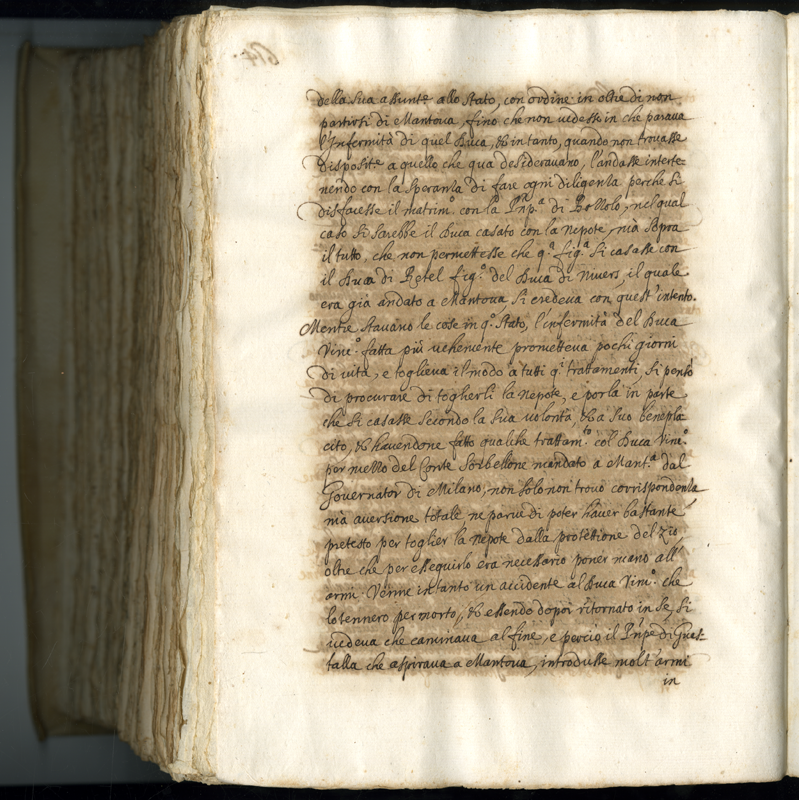 della Sua assunte allo Stato, con ordine in oltre di non
partirsi di Mantova, fino che non vedesse in che parava
l'Infermità di quel Duca, et intanto, quando non trovasse
disposite a quello che qua desideravano, l'andasse interte=
nendo con la speranza di fare ogni diligenza perche si
disfacesse il matrim.º con la Pnp.ª di Bozzolo, nel qual
caso si sarebbe il Duca casato con la Nepote, mà sopra
il tutto, che non permettesse che q.ª fig.ª si casasse con
il Duca di Retel fig.º del Duca di Nivers, il quale
era già andato a Mantova si credeva con quest'intento.
Mentre stavano le cose in q.º stato, l'infermità del Duca
Vinc.º fatta più vehemente prometteva pochi giorni
di vita, e toglieva il modo a tutti q.i trattamenti, si pensò
di procurare di togherli la Nepote, e porla in parte
che si casasse secondo la sua volontà, et a suo benepla
cito, et havendone fatto qualche trattam.to col Duca Vinc.º
per mezzo del Conte Sorbellone mandato a Mant.ª dal
Governator di Milano, non solo non trovò corrispondenza
mà aversione totale, ne parve di poter haver bastante
pretesto per toglier la nepote dalla protettione del Zio
oltre che per essequirlo era necessario poner mano all'
armi. Venne intanto un accidente al Duca Vinc.º che
lo tennero per morto, et essendo dopoi ritornato in se, si
vedeva che caminava al fine, e perciò il Pnpe di Guas=
talla che aspirava a Mantova, introdusse molt'armi
in